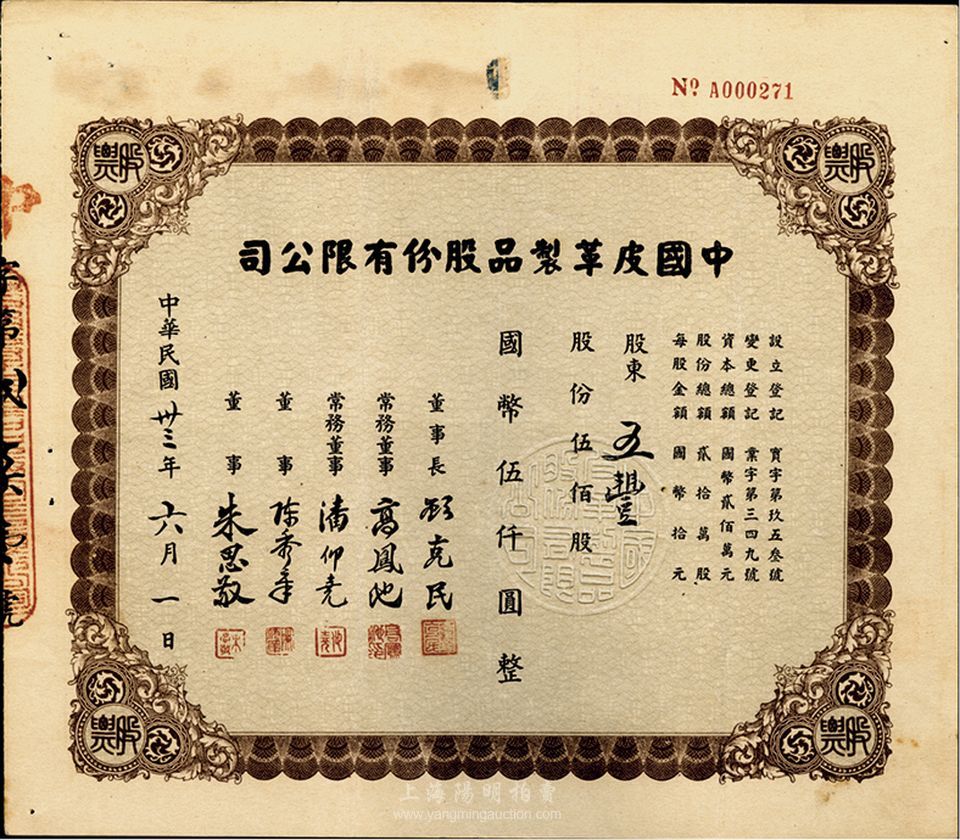 Nº A000271
股票
股票
中國皮革製品股份有限公司
設立登記 實字第玖五叁號
變更登記 業字第三四九號
資本總額 國幣貳佰萬元
股份總額 貳拾萬股
每股金額 國幣拾元
股東 五豐
股份伍佰股
國幣伍仟圓整
董事長 顧克民
常務董事 高鳳池
常務董事 潘仰堯
董事 陈秀峯
董事 朱思敬
中華民國卅三年六月一日
股票
股票
上海陽明拍賣
www.yangmingauction.com